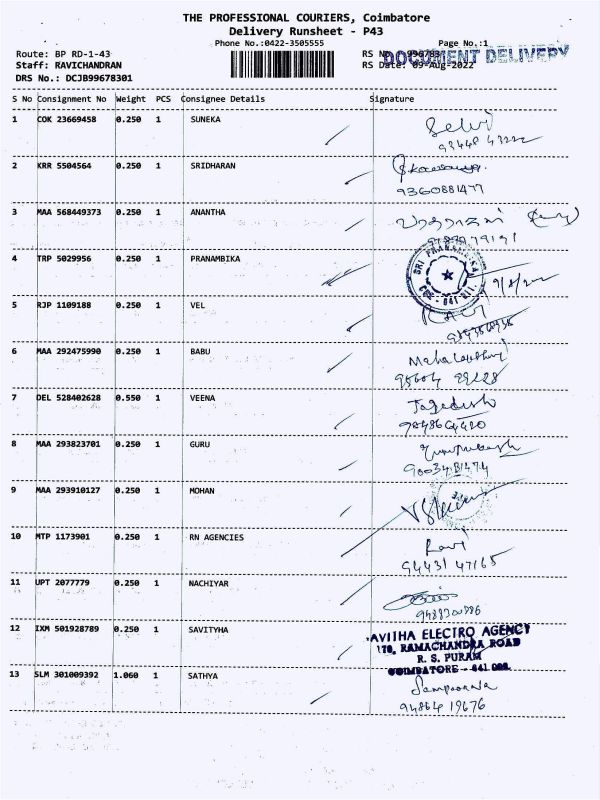 THE PROFESSIONAL COURIERS, Coimbatore
Delivery Runsheet - P43
Phone No.:0422-3505555
Page No.:1
Route: BP RD-1-43
RS No.: 996783
DOCUMENT DELIVERY
Staff: RAVICHANDRAN
RS Date: 09-Aug-2022
DRS No.: DCJB99678301
S No Consignment No Weight PCS Consignee Details Signature
1 COK 23669458 0.250 1 SUNEKA
Selvi
2 KRR 5504564 0.250 1 SRIDHARAN
9360881477
3 MAA 568449373 0.250 1 ANANTHA
4 TRP 5029956 0.250 1 PRANAMBIKA
SRI PRANAMBIKA
5 RJP 1109188 0.250 1 VEL
6 MAA 292475990 0.250 1 BABU
7 DEL 528402628 0.550 1 VEENA
Jagadish
8 MAA 293823701 0.250 1 GURU
9 MAA 293910127 0.250 1 MOHAN
10 MTP 1173901 0.250 1 RN AGENCIES
Ravi
94431 47165
11 UPT 2077779 0.250 1 NACHIYAR
12 IXM 501928789 0.250 1 SAVITYHA
AVITHA ELECTRO AGENCY
178, RAMACHANDRA ROAD
R. S. PURAM
COIMBATORE - 641 002.
13 SLM 301009392 1.060 1 SATHYA
Sampoorna
94864 19676